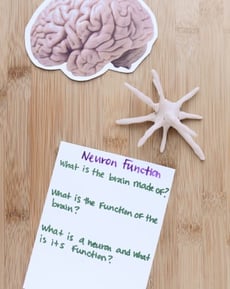 Neuron Function
What is the brain made of?
What is the Function of the
brain?
What is a neuron and what
is it's Function?